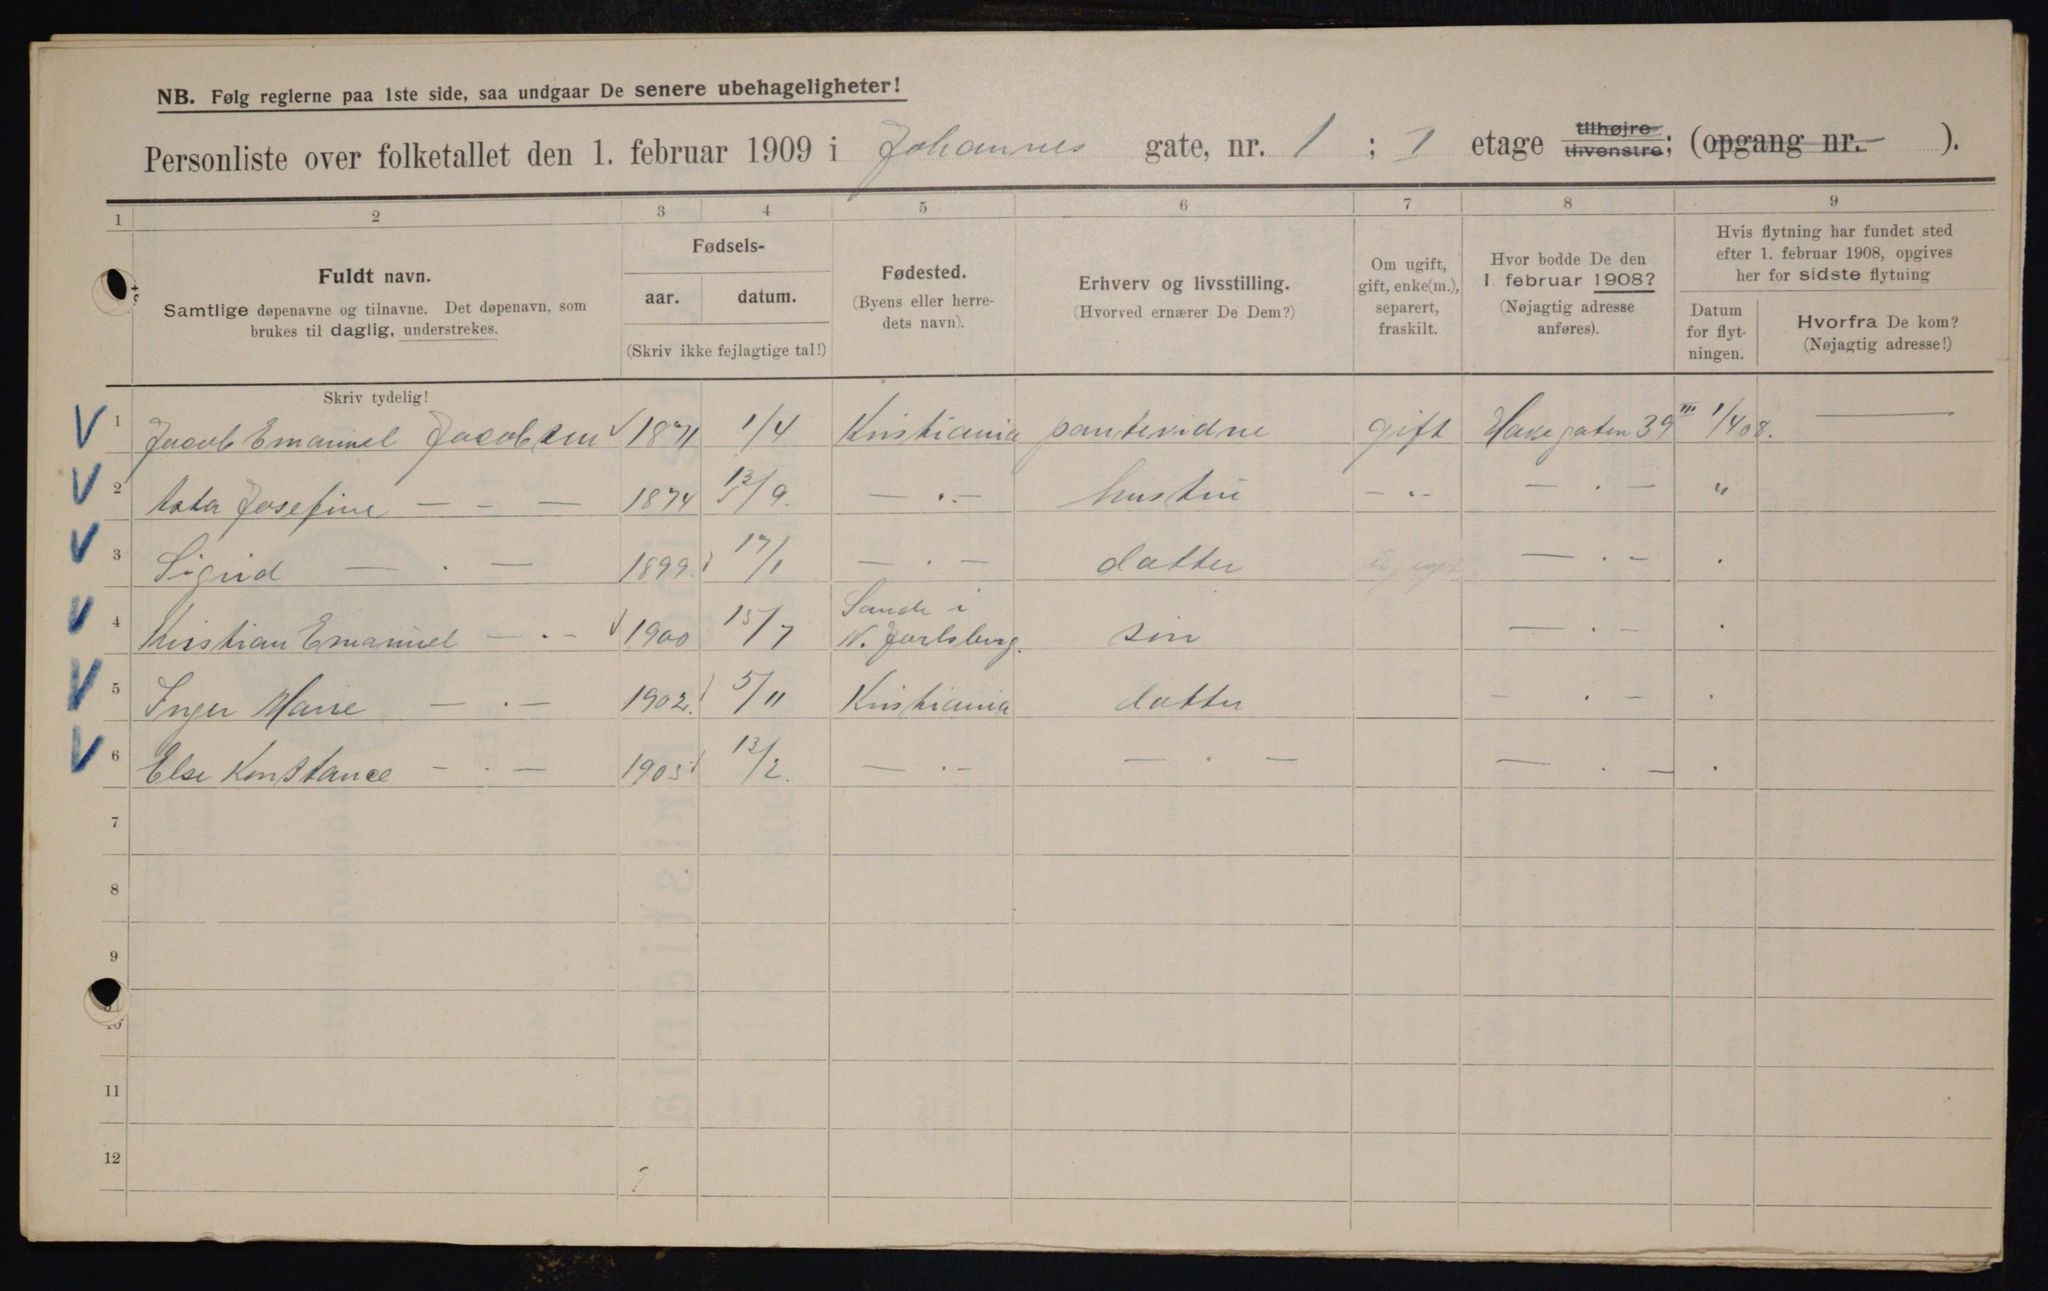 NB. Følg reglerne paa 1ste side, saa undgaar De senere ubehageligheter!
Personliste over folketallet den 1. februar 1909 i Johannes gate, nr. 1 ; I etage tilhøjre tilvenstre; (opgang nr. — ).
1 2 3 4 5 6 7 8 9
Fuldt navn.
Samtlige døpenavne og tilnavne. Det døpenavn, som
brukes til daglig, understrekes.
Fødsels-
aar. datum.
(Skriv ikke fejlagtige tal!)
Fødested.
(Byens eller herre-
dets navn).
Erhverv og livsstilling.
(Hvorved ernærer De Dem?)
Om ugift,
gift, enke(m.),
separert,
fraskilt.
Hvor bodde De den
1. februar 1908?
(Nøjagtig adresse
anføres).
Hvis flytning har fundet sted
efter 1. februar 1908, opgives
her for sidste flytning
Datum
for flyt-
ningen.
Hvorfra De kom?
(Nøjagtig adresse!)
Skriv tydelig!
V 1 Jacob Emanuel Jacobsen 1871 1/4 Kristiania pantevidne gift gaten 39 III 1/4 08. —
V 2 Josefine — - — 1874 /9. — . — hustru — „ — — . — „
V 3 Sigrid — . — 1899. 17/1 — . — datter ugift — . — .
V 4 Kristian Emanuel — . — 1900 15/7 Sande i N. Jarlsberg. sin — . — .
V 5 Inger Marie — . — 1902. 5/11 Kristiania datter — . — .
V 6 Else Konstance — . — 1905 13/2. — . — — . — — . — .
7
8
9
10
11
12